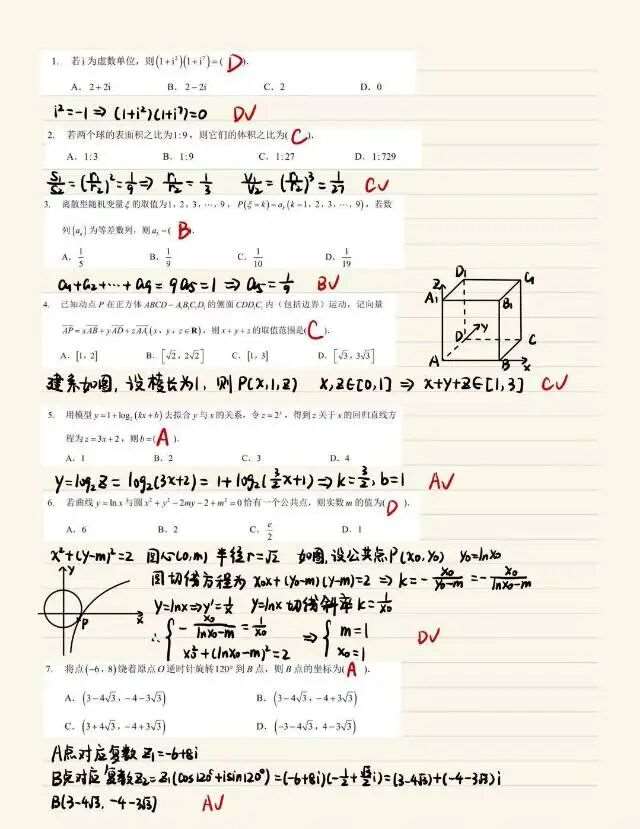 1. 若 i 为虚数单位，则(1+i²)(1+i⁷)=( D ).
A. 2+2i B. 2-2i C. 2 D. 0
i²=-1 ⇒ (1+i²)(1+i⁷)=0 D√
2. 若两个球的表面积之比为1:9，则它们的体积之比为( C ).
A. 1:3 B. 1:9 C. 1:27 D. 1:729
S₁/S₂=(r₁/r₂)²=1/9 ⇒ r₁/r₂=1/3 V₁/V₂=(r₁/r₂)³=1/27 C√
3. 离散型随机变量ξ的取值为1，2，3，…，9，P(ξ=k)=aₖ(k=1，2，3，…，9)，若数
列{aₙ}为等差数列，则a₅=( B ).
A. 1/5 B. 1/9 C. 1/10 D. 1/19
a₁+a₂+…+a₉=9a₅=1 ⇒ a₅=1/9 B√
4. 已知动点P在正方体ABCD-A₁B₁C₁D₁的侧面CDD₁C₁内（包括边界）运动，记向量
AP=xAB+yAD+zAA₁(x，y，z∈R)，则x+y+z的取值范围是( C ).
A. [1，2] B. [√2，2√2] C. [1，3] D. [√3，3√3]
D₁ C₁ Z A₁ B₁ D Y C A B X
建系如图，设棱长为1，则P(x,1,z) x,z∈[0,1] ⇒ x+y+z∈[1,3] C√
5. 用模型y=1+log₂(kx+b)去拟合y与x的关系，令z=2ʸ，得到z关于x的回归直线方
程为z=3x+2，则b=( A ).
A. 1 B. 2 C. 3 D. 4
y=log₂z=log₂(3x+2)=1+log₂(3/2x+1) ⇒ k=3/2, b=1 A√
6. 若曲线y=lnx与圆x²+y²-2my-2+m²=0恰有一个公共点，则实数m的值为( D ).
A. 6 B. 2 C. e/2 D. 1
x²+(y-m)²=2 圆心(0,m) 半径r=√2 如图，设公共点P(x₀,y₀) y₀=lnx₀
圆切线方程为 x₀x+(y₀-m)(y-m)=2 ⇒ k=-x₀/(y₀-m)=-x₀/(lnx₀-m)
y=lnx ⇒ y'=1/x y=lnx切线斜率k=1/x₀
Y X P
∴ { -x₀/(lnx₀-m)=1/x₀ ⇒ { m=1
x₀²+(lnx₀-m)²=2 x₀=1 D√
7. 将点(-6，8)绕着原点O逆时针旋转120°到B点，则B点的坐标为( A ).
A. (3-4√3，-4-3√3) B. (3-4√3，-4+3√3)
C. (3+4√3，-4+3√3) D. (-3-4√3，4-3√3)
A点对应复数z₁=-6+8i
B点对应复数z₂=z₁(cos120°+isin120°)=(-6+8i)(-1/2+√3/2i)=(3-4√3)+(-4-3√3)i
B(3-4√3, -4-3√3) A√